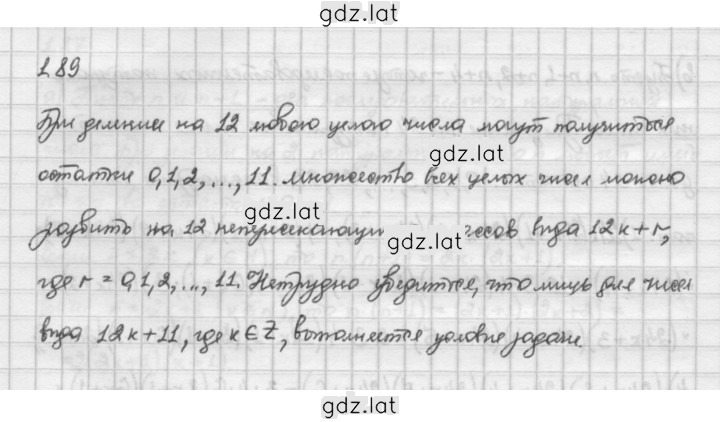 gdz.lat
1.89
При делении на 12 любого целого числа могут получиться
gdz.lat
остатки 0, 1, 2, ..., 11. множество всех целых чисел можно
gdz.lat
разбить на 12 классов вида 12k + r,
gdz.lat
где r = 0, 1, 2, ..., 11. Нетрудно убедиться, что лишь для чисел
gdz.lat
вида 12k + 11, где k ∈ Z, выполняется условие задачи.
gdz.lat